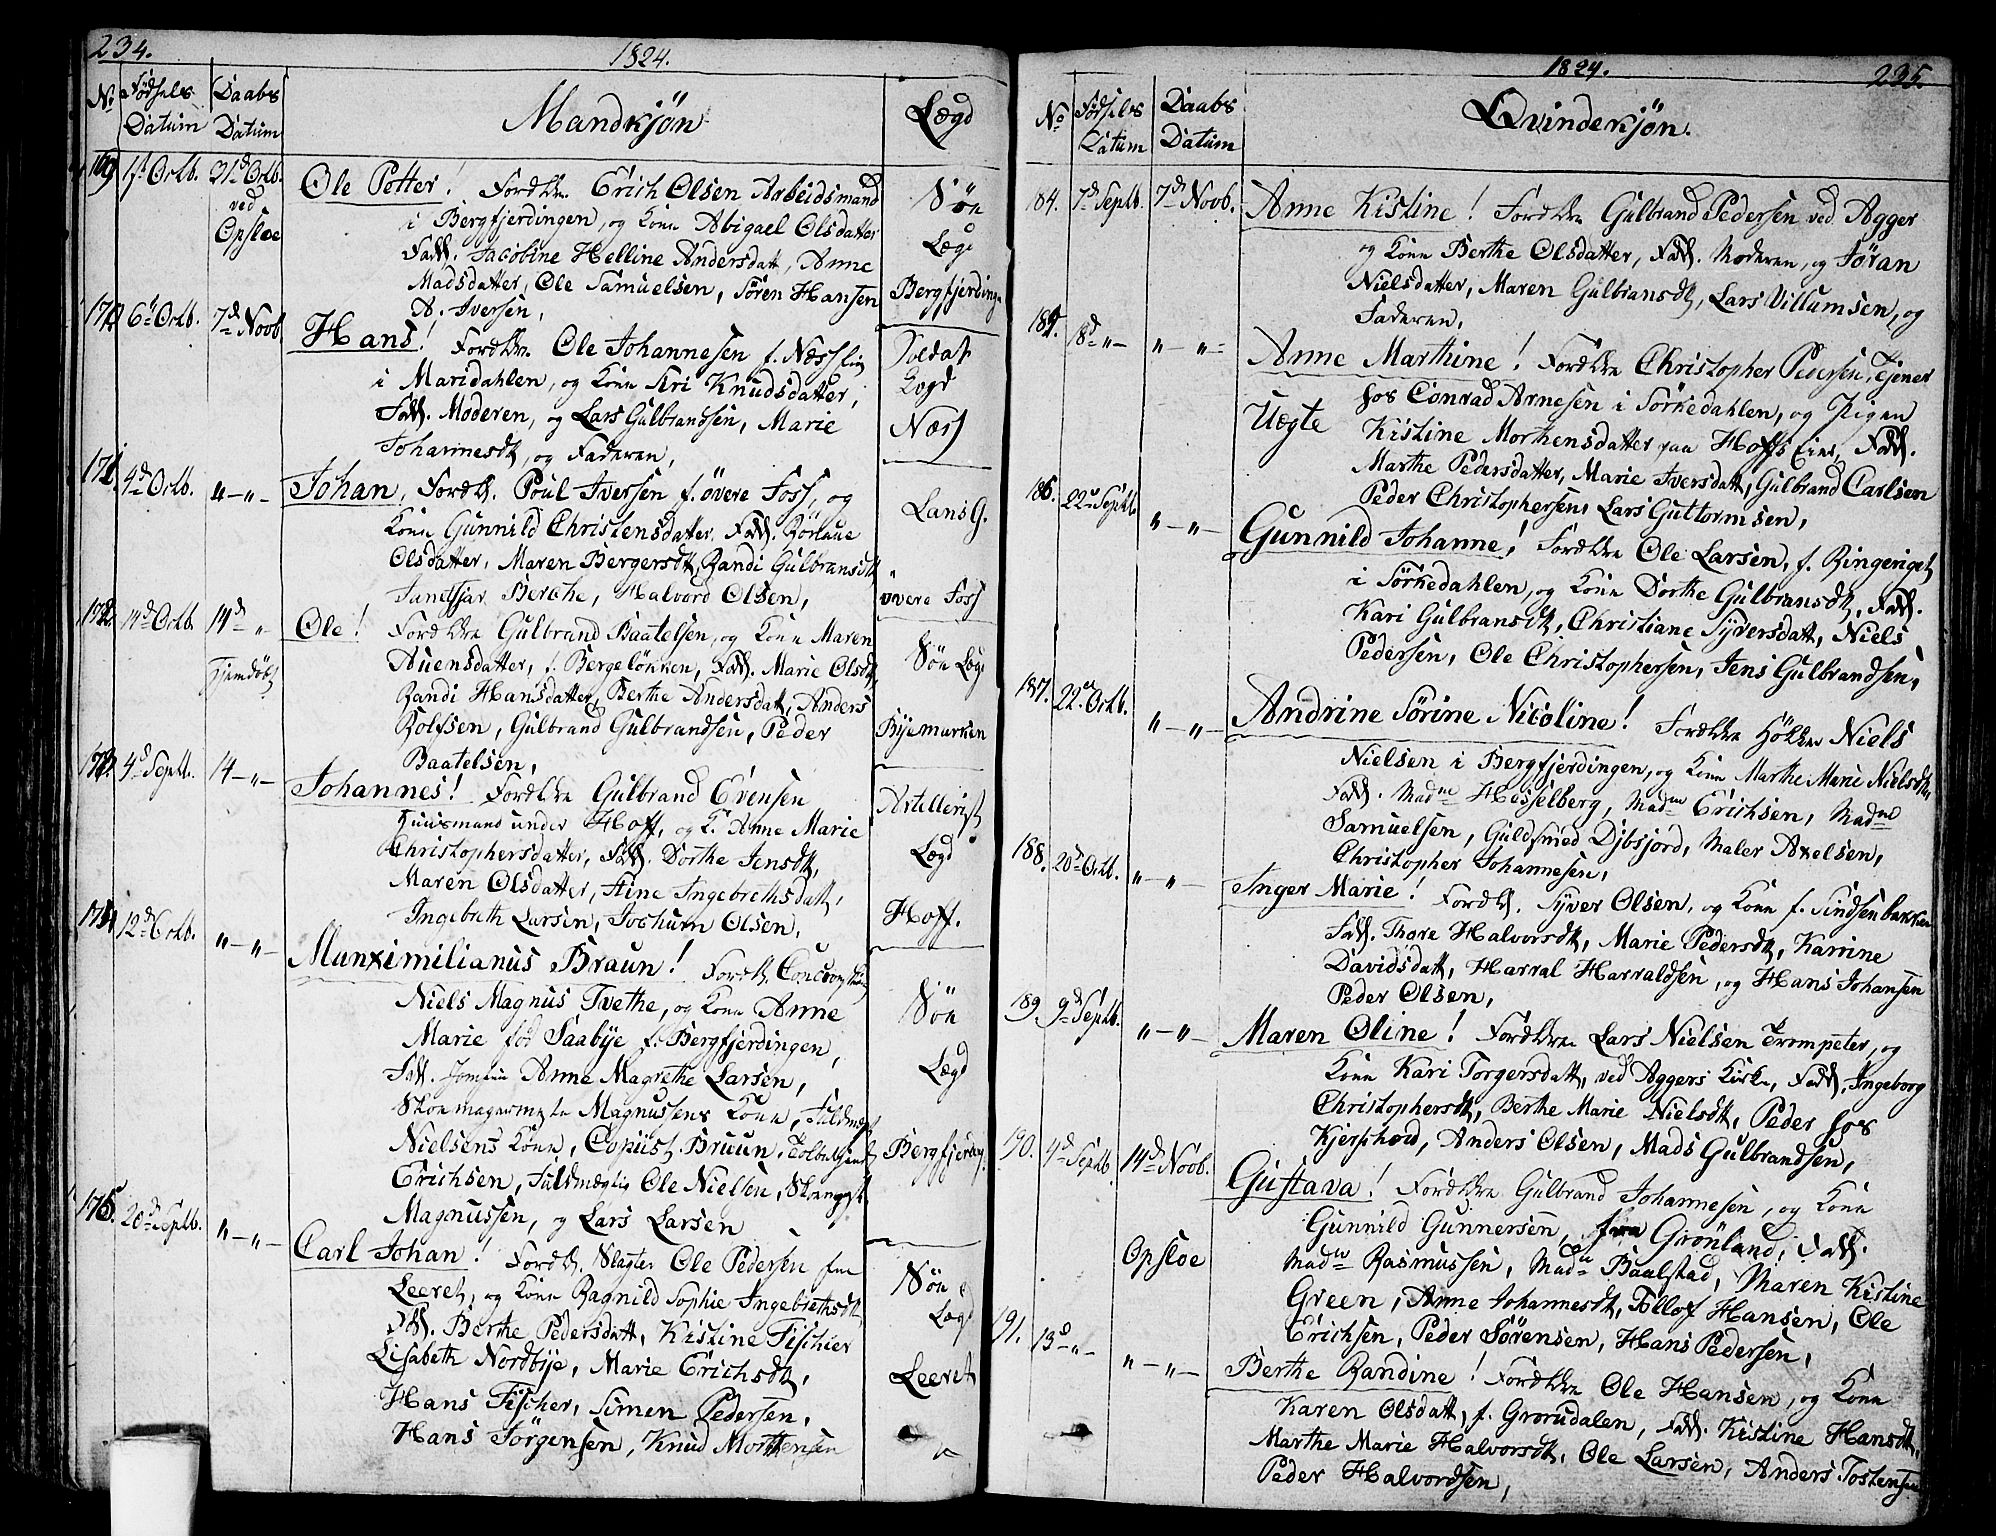 234.
1824.
No
Fødsels
Datum
Daabs
Datum
Mandkjön
Lægd
169
1st Octb.
31d Octb.
ved
Opsloe
Ole Petter! Forældre Erich Olsen Arbeidsmand
i Bergfjerdingen, og Kone Abigael Olsdatter
Fadd. Jacobine Helline Andersdatt, Anne
Madsdatter, Ole Samuelsen, Sören Hansen
A. Iversen,
Søn
Lægd
Bergfjerding
170
6d Octb.
7d Novb.
Hans! Forældre Ole Johannesen f. Næss
i Maridahlen, og Kone Siri Knudsdatter,
Fadd. Moderen, og Lars Gulbrandsen, Marie
Johannesdt, og Faderen,
Soldat
Lægd
Næss
171
4d Octb.
"—"—
Johan, Foræld. Poul Iversen f. øvere Foss, og
Kone Gunnild Christensdatter, Fadd.
Olsdatter, Maren Bergersdt, Randi Gulbransdt
Berthe, Halvord Olsen,
LansG.
øvere Foss
172
14d Octb.
14d "
Hiemdøbt
Ole! Forældre Gulbrand Baatelsen, og Kone Maren
Auensdatter, f. Bergeløkken, Fadd. Marie Olsdt,
Randi Hansdatter, Berthe Andersdatt, Anders
Rolfsen, Gulbrand Gulbrandsen, Peder
Baatelsen,
Søn Lægd
Byemarken
173
4d Septb.
14—"—
Johannes! Forældre Gulbrand Evensen
Huusmand under Hoff, og K. Anne Marie
Christophersdatter, Fadd. Dorthe Jensdt,
Maren Olsdatter, Stine Ingebrethsdatt,
Ingebreth Larsen, Jochum Olsen,
Artellerist
Lægd
Hoff.
174
12d Octb.
"—"—
Manximilianus Braun! Foræld.
Niels Magnus Tvethe, og Kone Anne
Marie fød Saabye f. Bergfjerdingen,
Fadd. Jomfrue Anne Magrethe Larsen,
Magnussens Kone,
Nielsens Kone, Copiist Bruun,
Erichsen, Ole Nielsen,
Magnussen, og Lars Larsen
Søn
Lægd
Bergfjerding
175
20d Septb.
"—"—
Carl Johan! Foræld. Slagter Ole Pedersen fra
Leeret, og Kone Ragnild Sophie Ingebrethsdt
Fadd. Berthe Pedersdatt, Kistine Fischier
Lisabeth Nordbye, Marie Erichsdt,
Hans Fischer, Simen Pedersen,
Hans Jörgensen, Knud Morthensen
Søn
Lægd
Leeret
1824.
235.
No
Fødsels
Datum
Daabs
Datum
Qvindekjön.
184.
7d Septb.
7d Novb.
Anne Kistine! Forældre Gulbrand Pedersen ved Agger
og Kone Berthe Olsdatter, Fadd. Moderen, og Jøran
Nielsdatter, Maren Gulbransdt, Lars Villumsen, og
Faderen,
185.
18d "—
"—"—
Uægte
Anne Marthine! Forældre Christopher Pedersen, Tjener
hos Conrad Arnesen i Sørkedahlen, og Pigen
Kistine Morthensdatter paa Hoffs Eier, Fadd.
Marthe Pedersdatter, Marie Iversdatt, Gulbrand Carlsen
Peder Christophersen, Lars Guttormsen,
186.
22d Septb.
"—"—
Gunnild Johanne! Forældre Ole Larsen, f. Ringeriget
i Sørkedahlen, og Kone Dorthe Gulbransdt, Fadd.
Kari Gulbransdt, Christiane Syversdatt, Niels
Pedersen, Ole Christophersen, Jens Gulbrandsen,
187.
22d Octb.
"—"—
Andrine Sörine Nicoline! Forældre Høkker Niels
Nielsen i Bergfjerdingen, og Kone Marthe Marie Nielsdtr
Fadd. Madme Hesselberg, Madme Erichsen, Madme
Samuelsen, Guldsmed Dybsjord, Maler Axelsen,
Christopher Johannesen,
188.
20d Octb.
"—"—
Inger Marie! Foræld. Syver Olsen, og Kone f. Sindsenbakken
Fadd. Thore Halvorsdt, Marie Pedersdt, Karrine
Davidsdatt, Harral Harraldsen, og Hans Johansen
Peder Olsen,
189
9d Septb.
"—"—
Maren Oline! Forældre Lars Nielsen Trompeter, og
Kone Kari Torgersdatt, ved Aggers Kirke, Fadd, Ingeborg
Christophersdt, Berthe Marie Nielsdt, Peder hos
Kjerphord, Anders Olsen, Mads Gulbrandsen,
190.
4d Septb
14d Novb.
Opsloe
Gustava! Forældre Gulbrand Johannesen, og Kone
Gunnild Gunnersen, fra Grønland, Fadd.
Madm Rasmussen, Madm Baalstad, Maren Kistine
Green, Anne Johannesdt, Tollof Hansen, Ole
Erichsen, Peder Sørensen, Hans Pedersen,
191.
13d "—
"—"—
Berthe Randine! Forældre Ole Hansen, og Kone
Karen Olsdatt, f. Grorudalen, Fadd. Kistine Hansdt,
Marthe Marie Halvorsdt, Ole Larsen, Anders Tostensen
Peder Halvordsen,